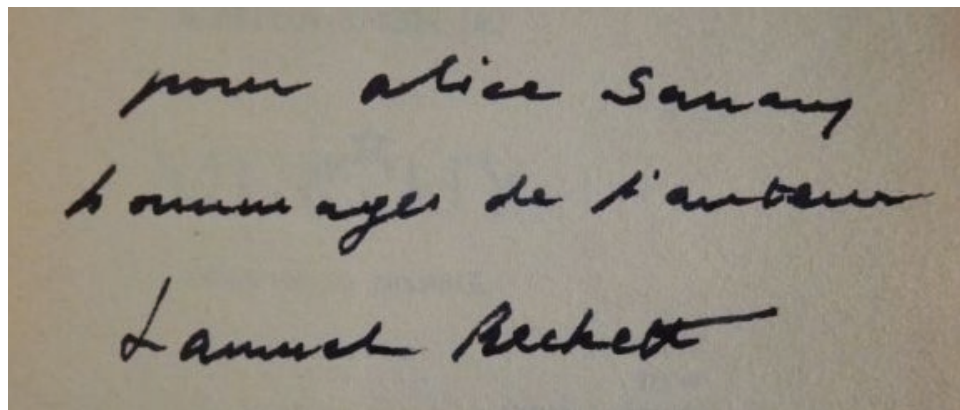 pour alice
hommages de l'auteur
Samuel Beckett